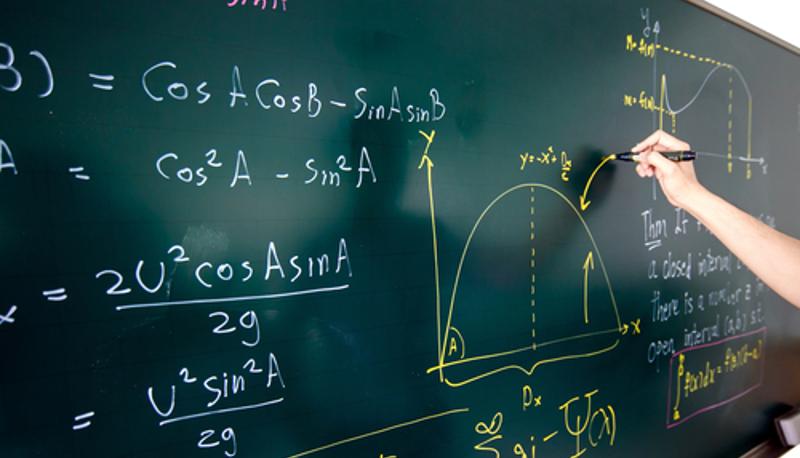 B) = Cos A CosB - SinA sinB
A = Cos² A - Sin² A
x = 2U² cos A sin A / 2g
= U² sin² A / 2g
Y
A
x
Dx
∞ Σ gi - Ψ(x)
y
M = f(
m = f(
x
Thm If
a closed interval
there is a number z
open interval (a,b) s.t.
∫ f(x)dx = f(z)(b-a)